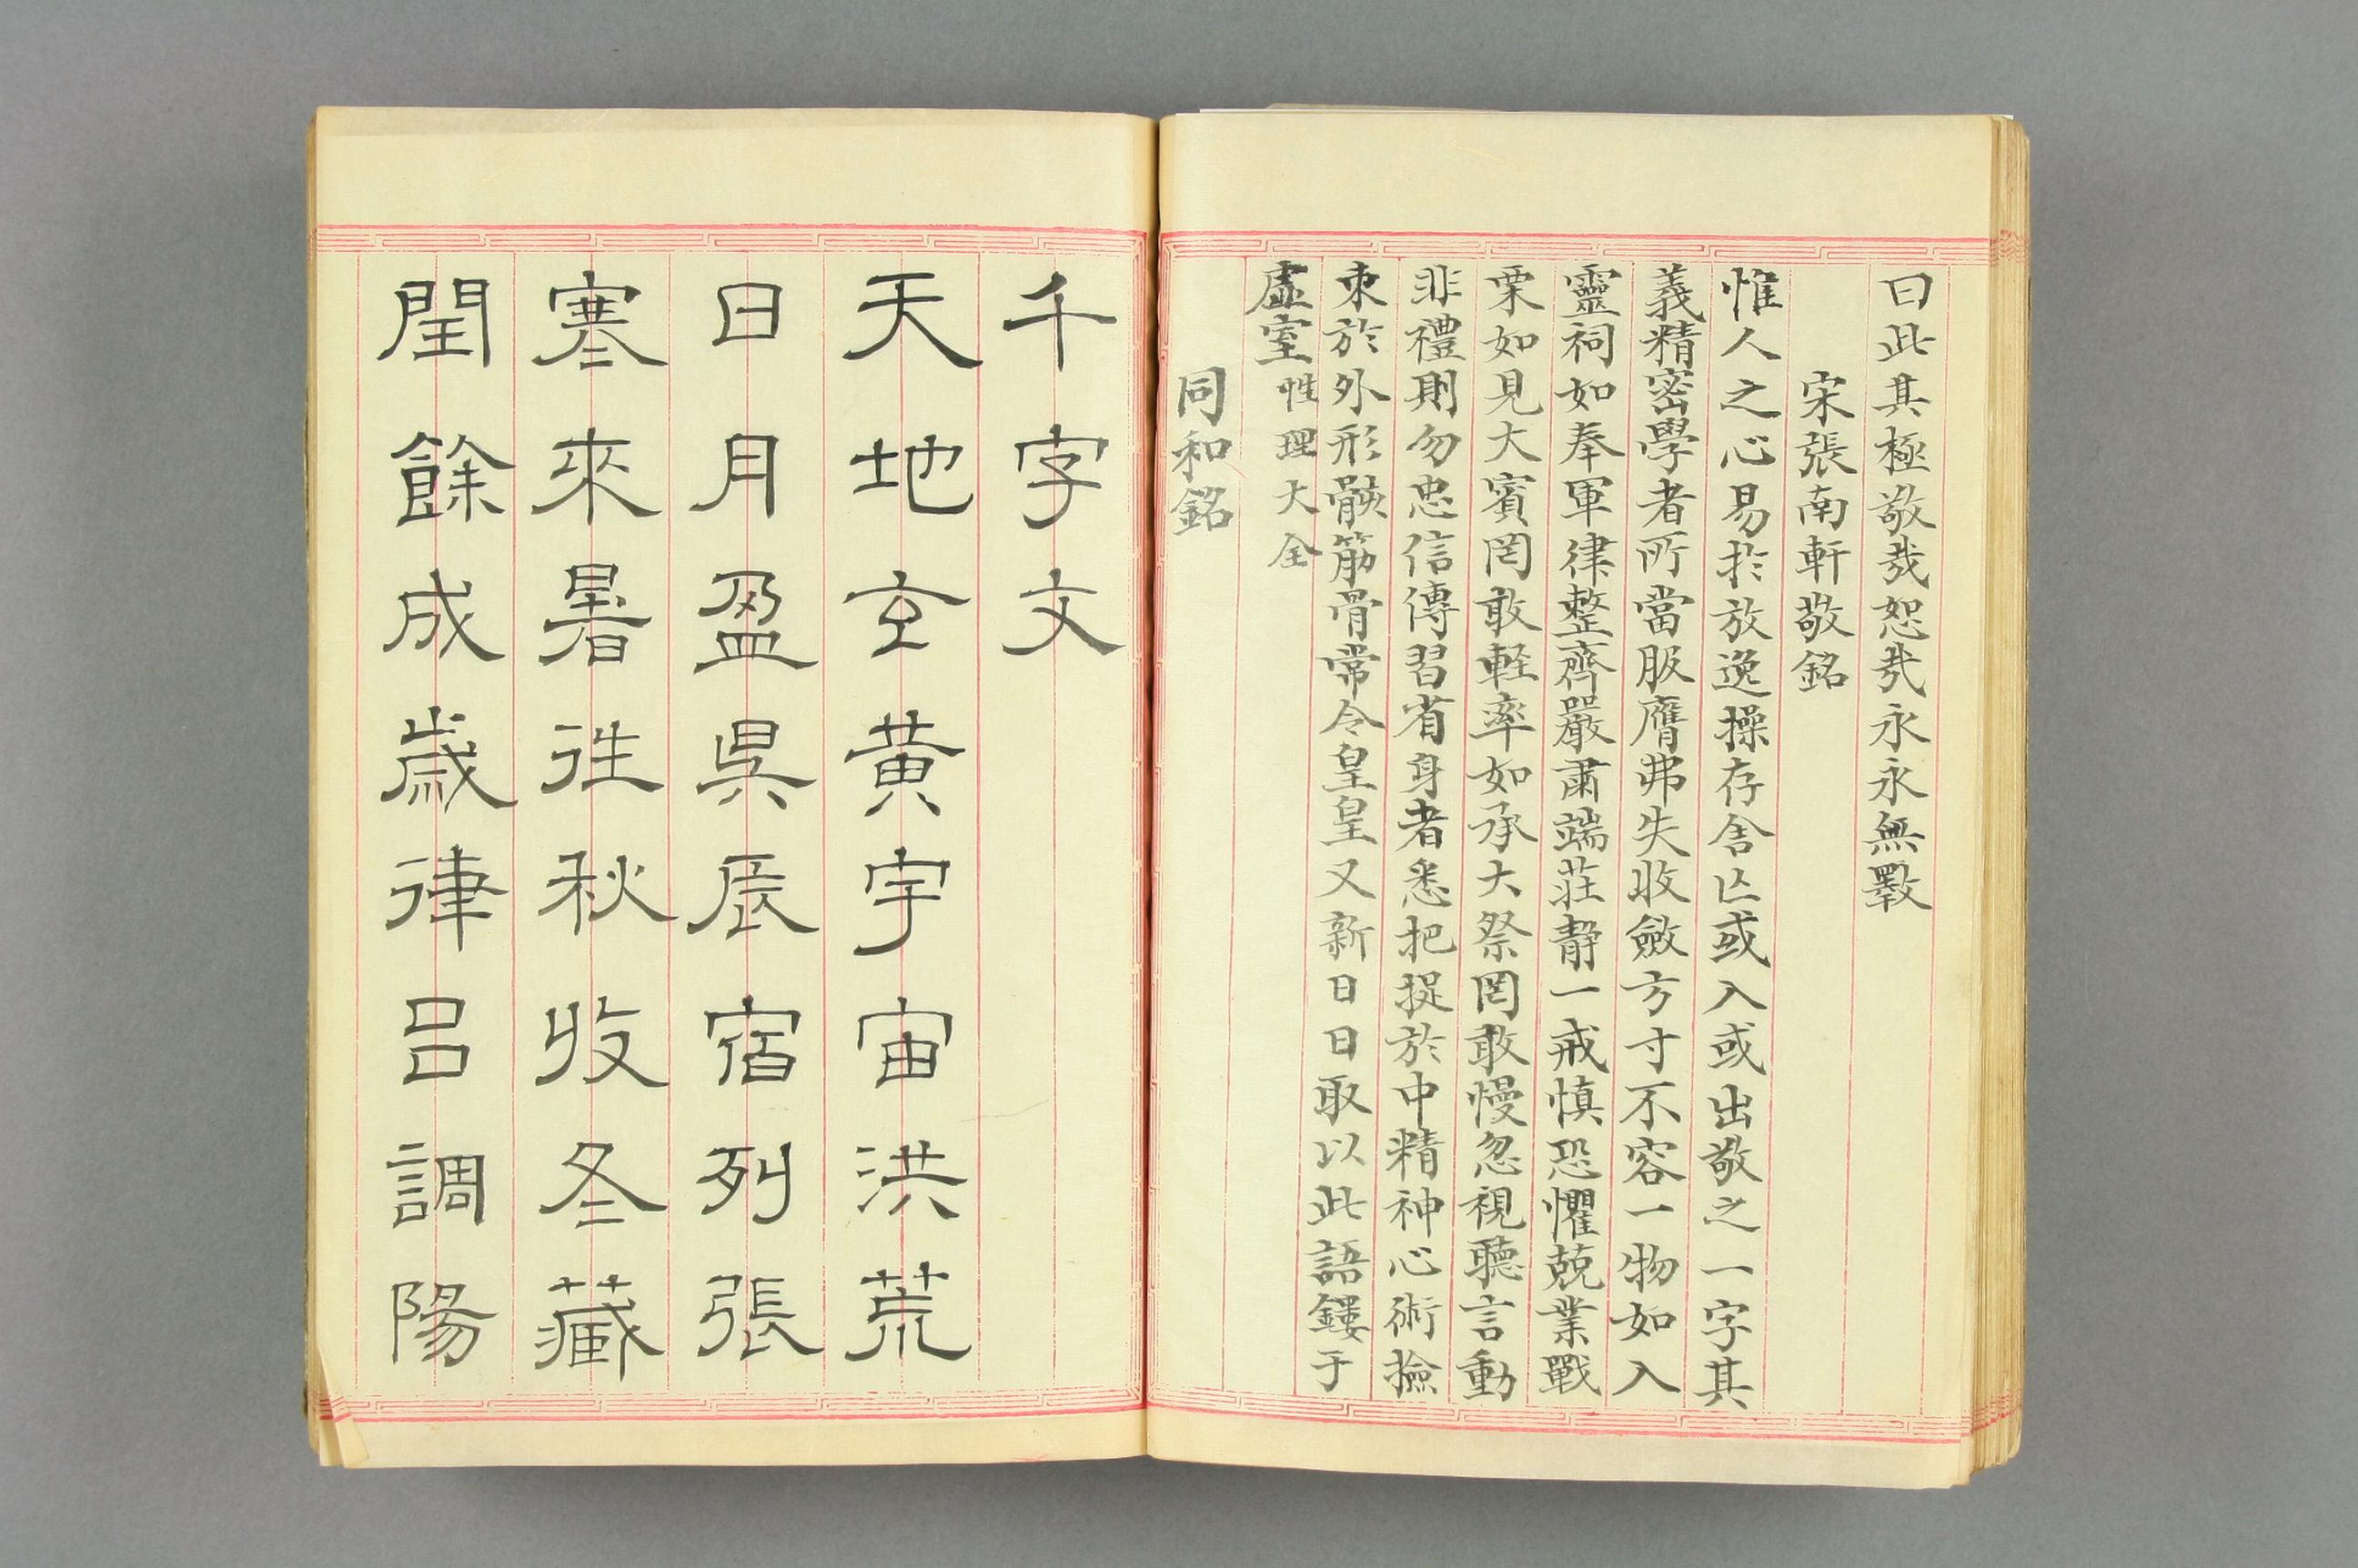 曰此其極敬哉恕哉永永無斁
宋張南軒敬銘
惟人之心易於放逸操存舍亾或入或出敬之一字其
義精密學者所當服膺弗失收斂方寸不容一物如入
靈祠如奉軍律整齊嚴肅端莊靜一戒慎恐懼兢業戰
栗如見大賓罔敢輕率如承大祭罔敢慢忽視聽言動
非禮則勿忠信傳習省身者悉把捉於中精神心術撿
束於外形骸筋骨常令皇皇又新日日取以此語鏤于
虛室性理大全
同和銘
千字文
天地玄黃宇宙洪荒
日月盈昃辰宿列張
寒來暑往秋收冬藏
閏餘成歲律呂調陽